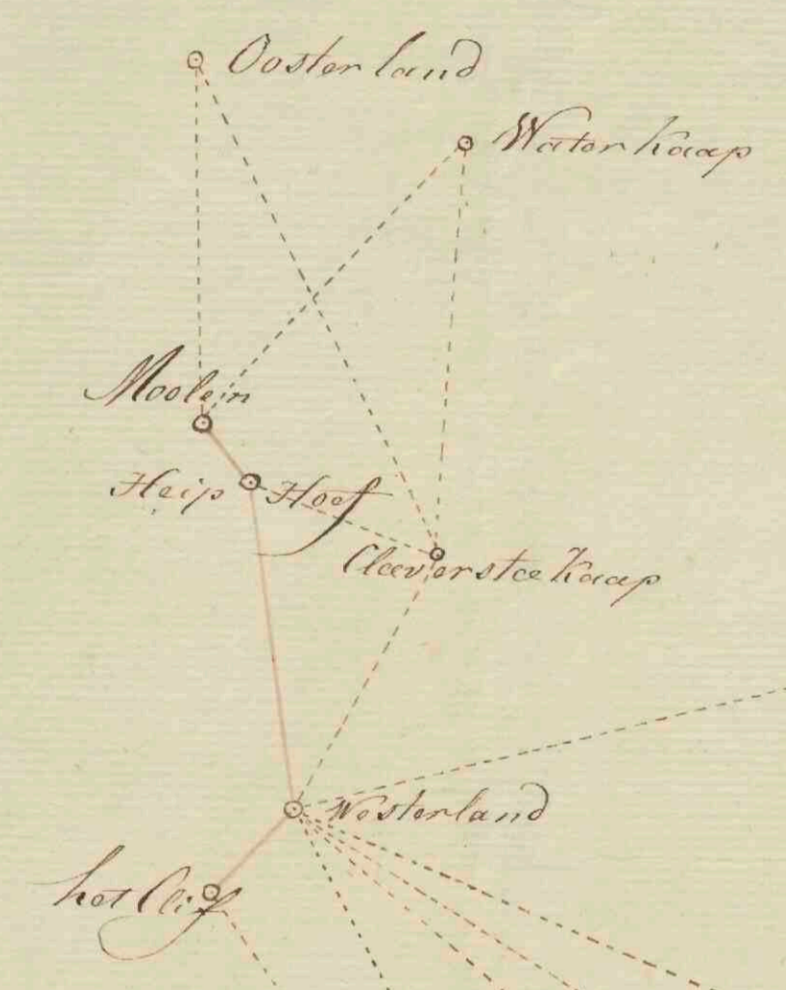 Oosterland
Water Kaap
Moolein
Heip Hoef
Claeverstae Kaap
Westerland
het Clif